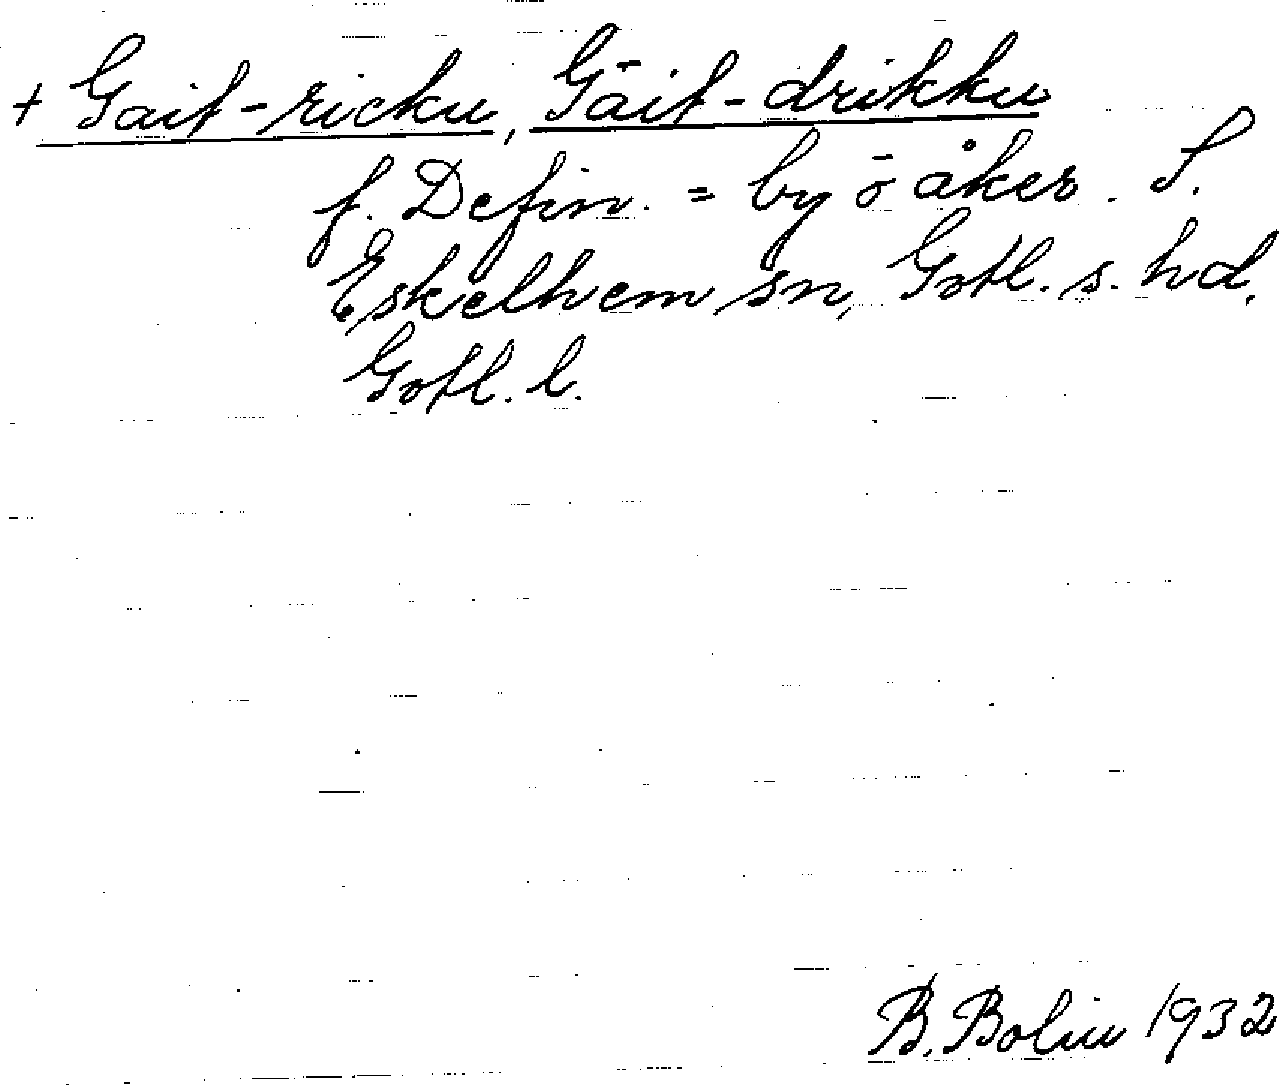 + Gait-ricku, Gāit-drikku
f. Defin. = by ō åker. S.
Eskelhem sn, Gotl. s. hd,
Gotl. l.
B. Bolin 1932